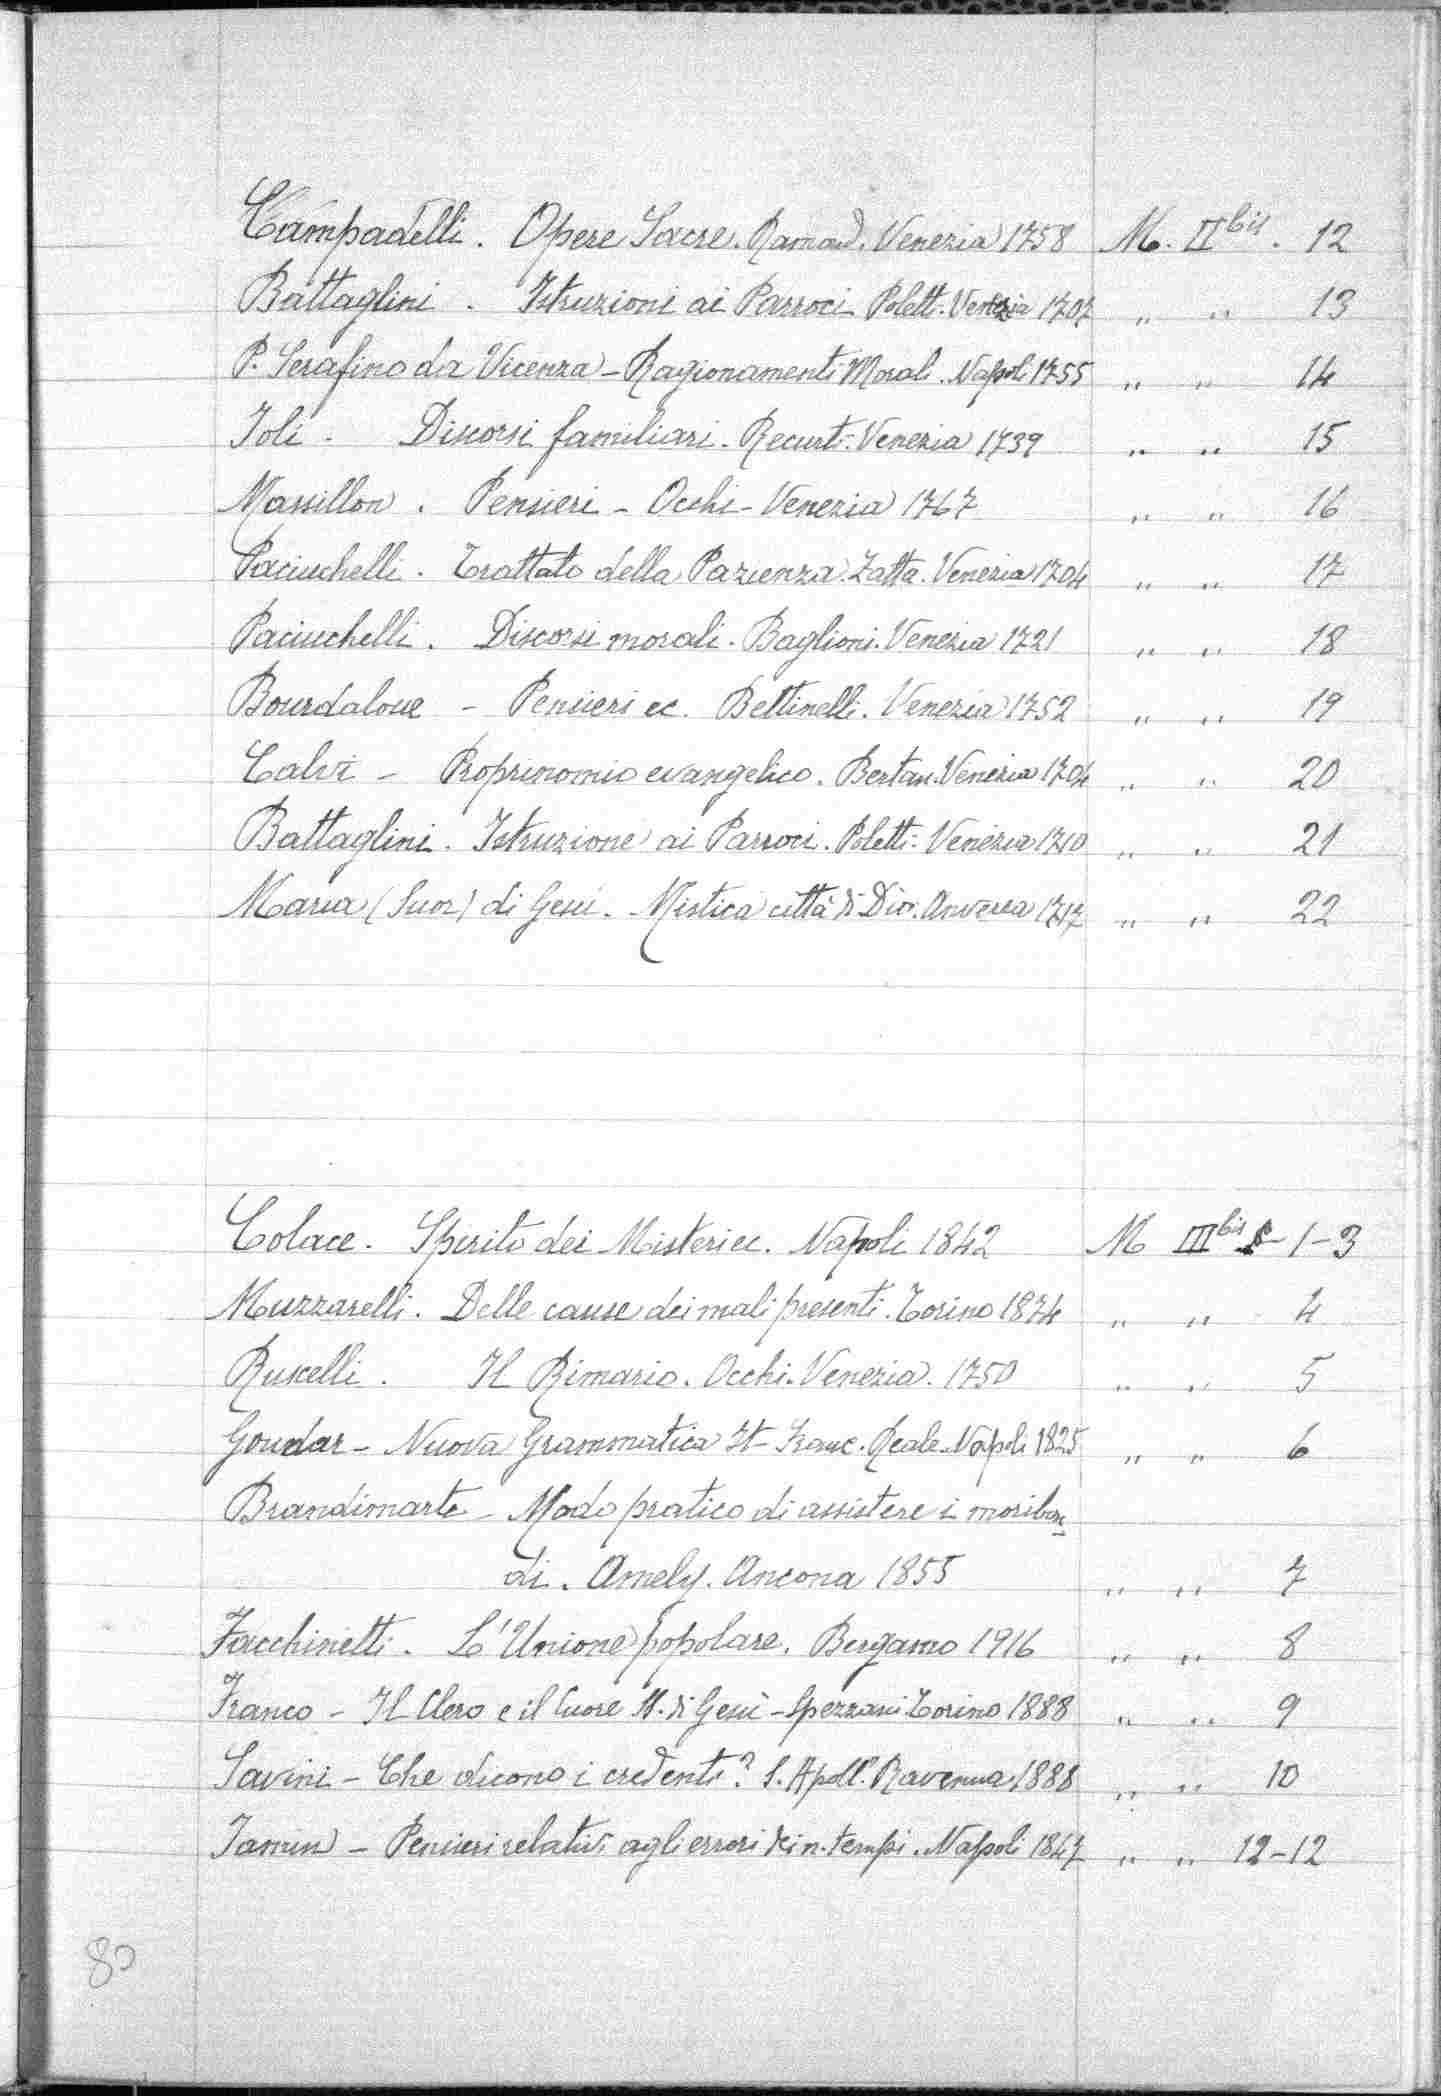 Campadelli. Opere Sacre. Ramad. Venezia 1758 M. II bis. 12
Battaglini. Istruzioni ai Parroci Polett. Venezia 1707 " " 13
P. Serafino da Vicenza - Ragionamenti Morali. Napoli 1755 " " 14
Ioli. Discorsi familiari. Recurti. Venezia 1739 " " 15
Massillon. Pensieri - Occhi - Venezia 1767 " " 16
Paciuchelli. Trattato della Pazienza. Zatta. Venezia 1704 " " 17
Paciuchelli. Discorsi morali. Baglioni. Venezia 1721 " " 18
Bourdaloue - Pensieri ec. Bettinelli. Venezia 1752 " " 19
Calvi - Proprinomio evangelico. Bertan. Venezia 1704 " " 20
Battaglini. Istruzione ai Parroci. Poletti. Venezia 1710 " " 21
Maria (Suor) di Gesú. Mistica città di Dio. Anversa 1717 " " 22
Colace. Spirito dei Misteri ec. Napoli 1842 M III bis - 1-3
Muzzarelli. Delle cause dei mali presenti. Torino 1874 " " 4
Ruscelli. Il Rimario. Occhi. Venezia. 1750 " " 5
Goudar - Nuova Grammatica It - Franc. Reale. Napoli 1825 " " 6
Brandimarte - Modo pratico di assistere i moribon
di. Amely. Ancona 1855 " " 7
Facchinetti. L'Unione popolare. Bergamo 1916 " " 8
Franco - Il Clero e il Cuore SS. di Gesù - Spezzani Torino 1888 " " 9
Savini - Che dicono i credenti? S. Apoll. Ravenna 1888 " " 10
Jamin - Pensieri relativi agli errori dei n. tempi. Napoli 1847 " " 12-12
80